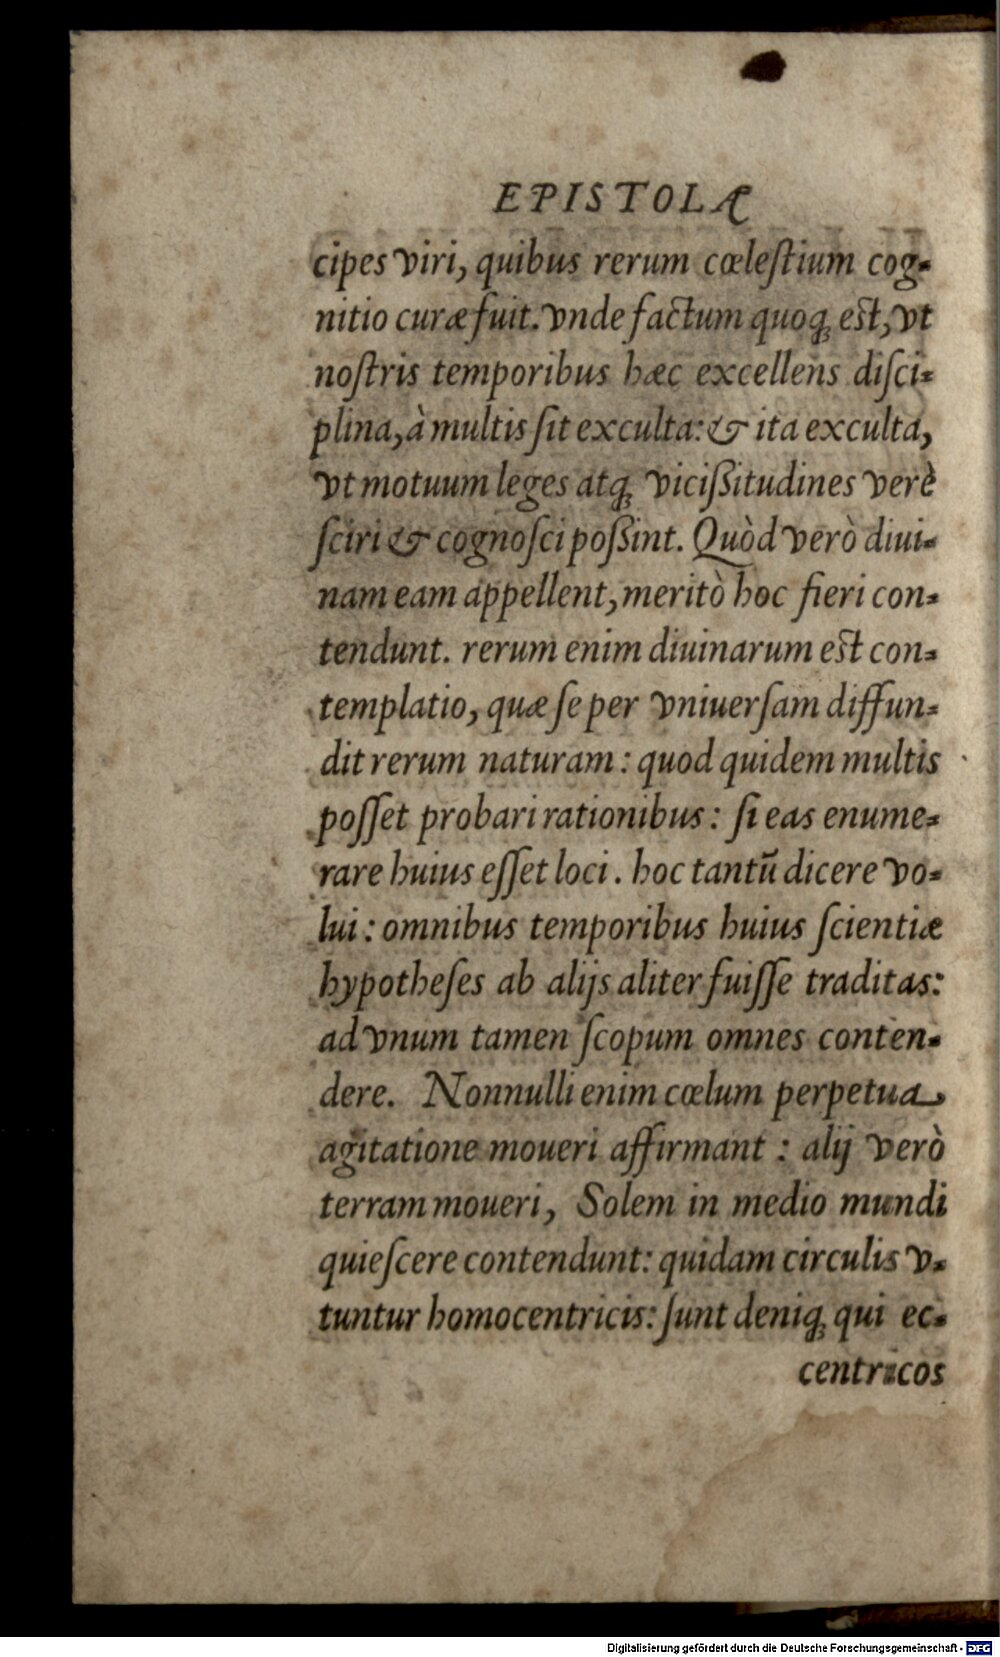 EPISTOLÆ
cipes viri, quibus rerum cœleſtium cog-
nitio curæ fuit. vnde factum quoq; est, vt
noſtris temporibus hæc excellens diſci-
plina, à multis ſit exculta: & ita exculta,
vt motuum leges atq; viciſſitudines verè
ſciri & cognoſci poſſint. Quòd verò diui-
nam eam appellent, meritò hoc fieri con-
tendunt. rerum enim diuinarum est con-
templatio, quæ ſe per vniuerſam diffun-
dit rerum naturam: quod quidem multis
poſſet probari rationibus: ſi eas enume-
rare huius eſſet loci. hoc tantū dicere vo-
lui: omnibus temporibus huius ſcientiæ
hypotheſes ab alijs aliter fuiſſe traditas:
ad vnum tamen ſcopum omnes conten-
dere. Nonnulli enim cœlum perpetua
agitatione moueri affirmant: alij verò
terram moueri, Solem in medio mundi
quieſcere contendunt: quidam circulis v-
tuntur homocentricis: ſunt deniq; qui ec-
centricos
Digitalisierung gefördert durch die Deutsche Forschungsgemeinschaft - DFG